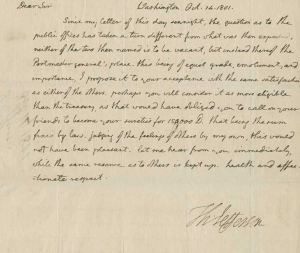 Dear Sir Washington Oct. 14. 1801.
Since my letter of this day sennight, the question as to the
public offices has taken a turn different from what was then
neither of the two then named is to be vacant, but instead thereof the
Postmaster general's place. this being of equal grade, emolument, and
importance, I propose it to your acceptance with the same satisfaction
as either of the others. perhaps you will consider it as more eligible
than the treasury, as that would have obliged you to call on your
friends to become your sureties for 150,000 D. that being the sum
fixed by law. judging of the feelings of others by my own, this would
not have been pleasant. let me hear from you immediately,
while the same reserve as to others is kept up. health and affec-
tionate respect.
Th: Jefferson